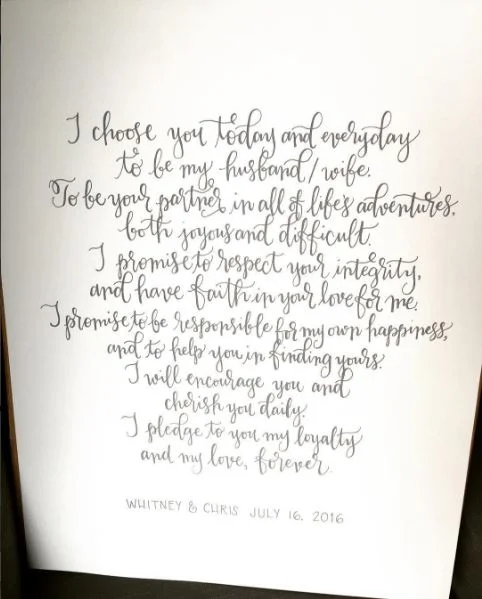 I choose you today and everyday
to be my husband/wife.
To be your partner in all of lifes adventures,
both joyous and difficult.
I promise to respect your integrity,
and have faith in your love for me.
I promise to be responsible for my own happiness,
and to help you in finding yours.
I will encourage you and
cherish you daily.
I pledge to you my loyalty
and my love, forever.
WHITNEY & CHRIS JULY 16, 2016